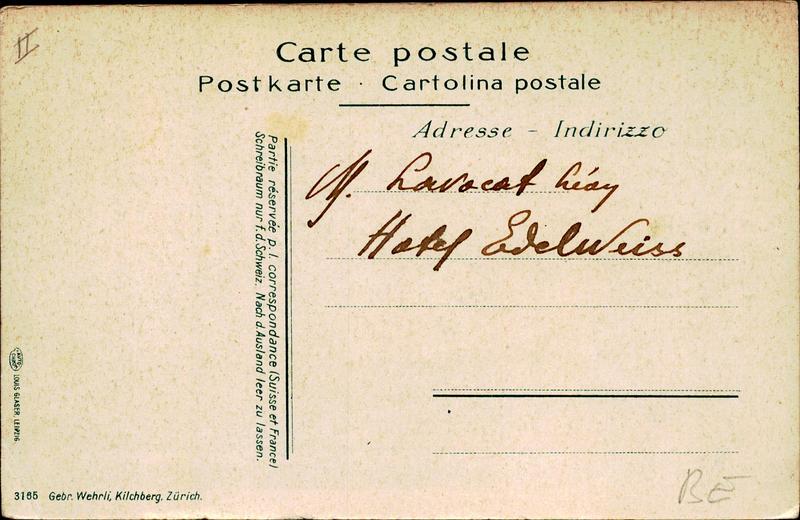 II
Carte postale
Postkarte · Cartolina postale
Adresse - Indirizzo
M. Lavocat Léon
Hotel Edelweiss
Partie réservée p. l. correspondance (Suisse et France)
Schreibraum nur f. d. Schweiz. Nach d. Ausland leer zu lassen.
LOUIS GLASER, LEIPZIG.
3165 Gebr. Wehrli, Kilchberg, Zürich.
BE